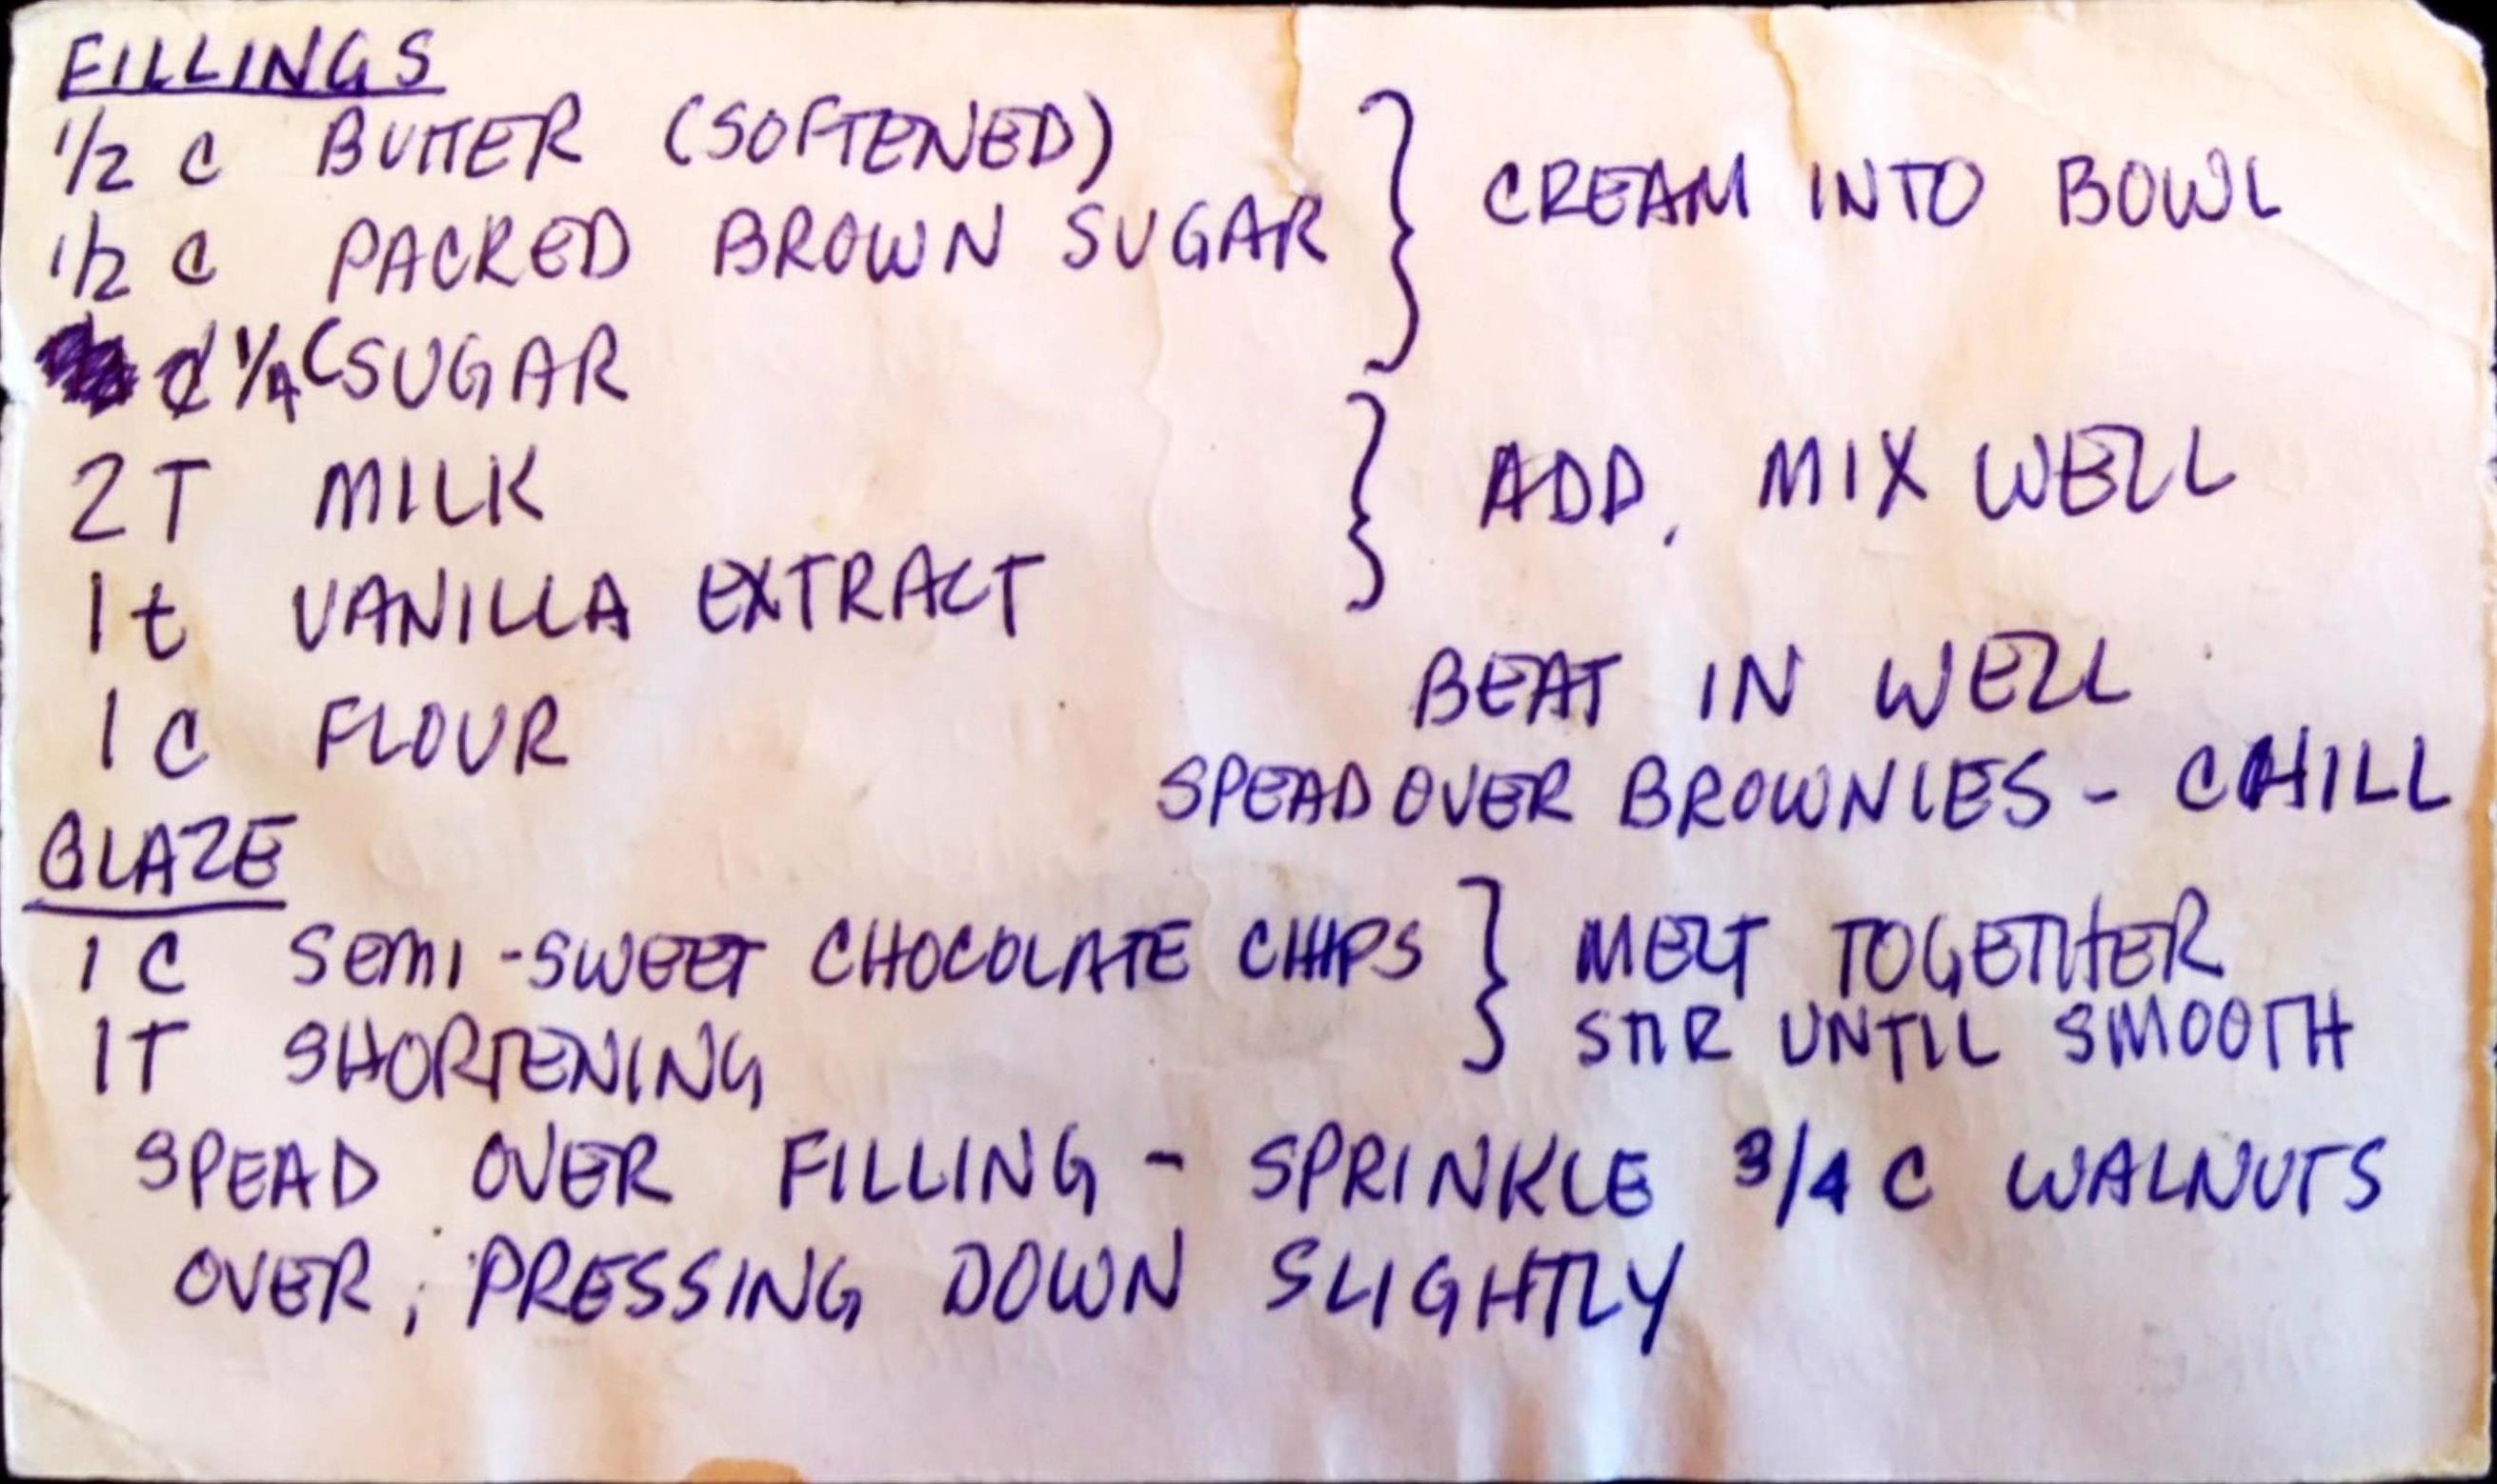 FILLINGS
1/2 C BUTTER (SOFTENED)
1/2 C PACKED BROWN SUGAR
CREAM INTO BOWL
C 1/4 C SUGAR
2 T MILK
1 t VANILLA EXTRACT
ADD, MIX WELL
1 C FLOUR
BEAT IN WELL
SPEAD OVER BROWNIES - CHILL
GLAZE
1 C SEMI-SWEET CHOCOLATE CHIPS
1 T SHORTENING
MELT TOGETHER
STIR UNTIL SMOOTH
SPEAD OVER FILLING - SPRINKLE 3/4 C WALNUTS
OVER, PRESSING DOWN SLIGHTLY